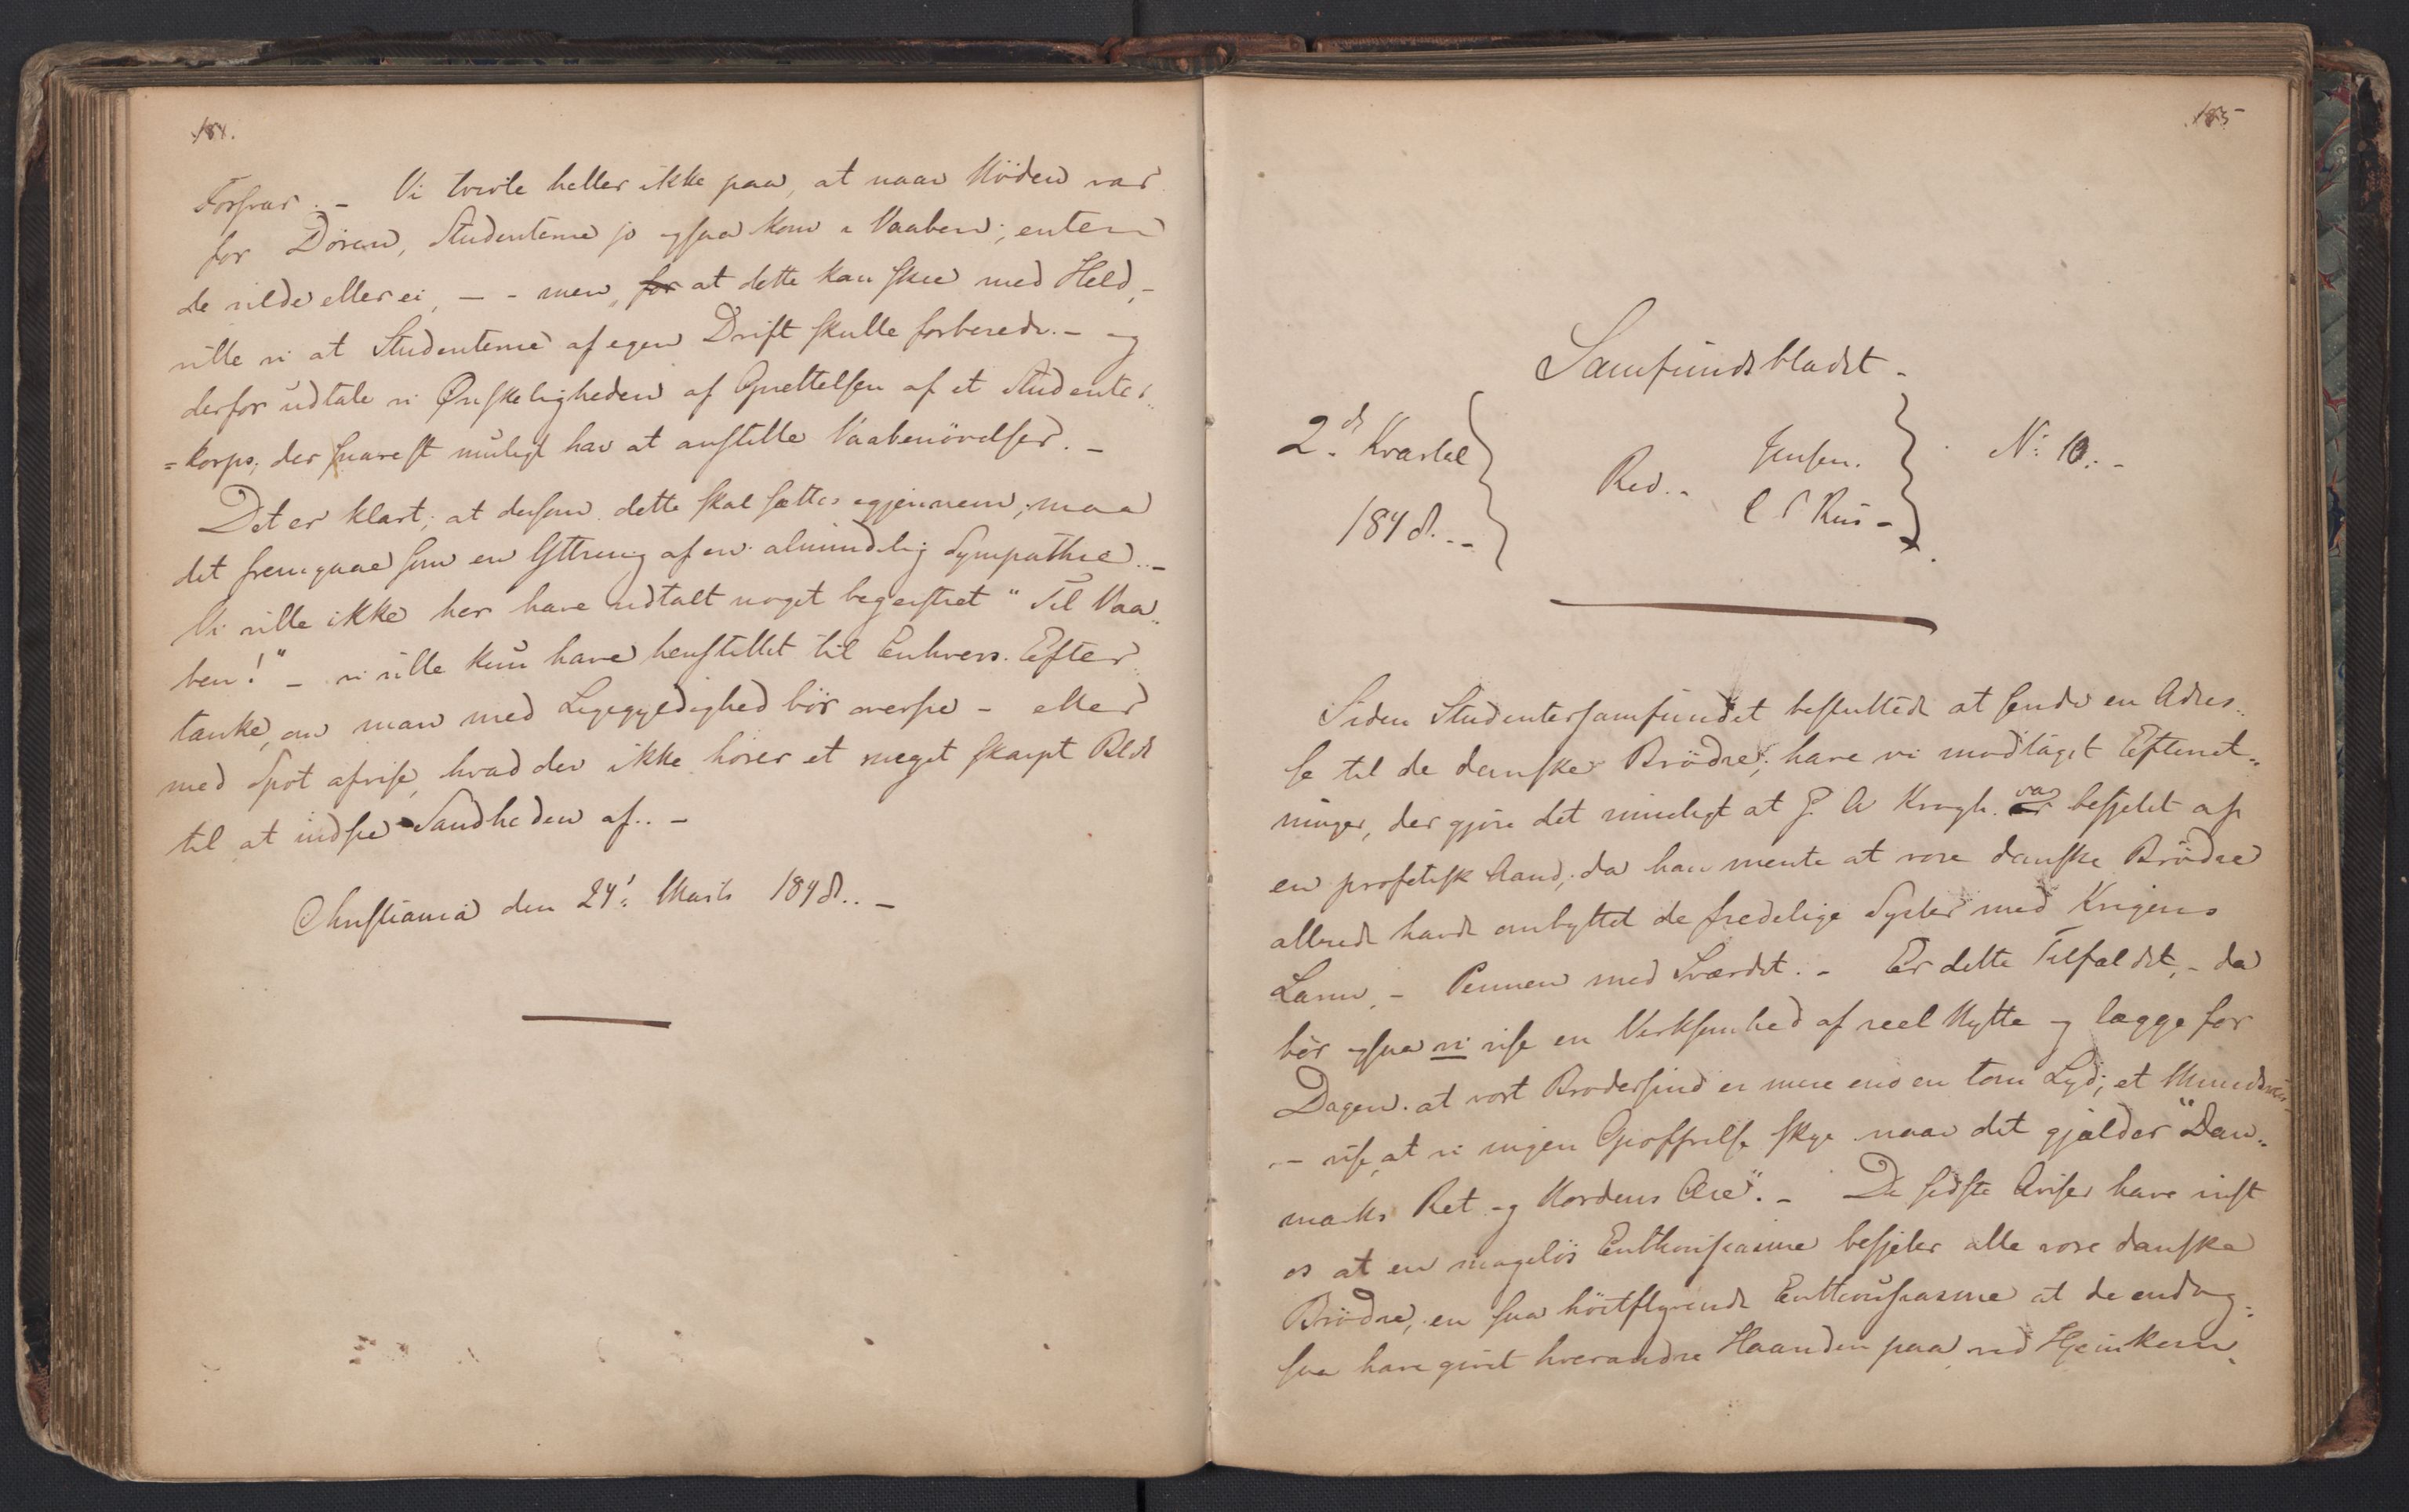 184.
Forsvar. – Vi tvivle heller ikke paa, at naar Nöden var
for Dören, Studenterne jo ogsaa kom i Vaaben; enten
de vilde eller ei, – - men, for at dette kan skee med Held, –
ville vi at Studenterne af egen Drift skulle forberede. – og
derfor udtale vi Ønskeligheden af Oprettelsen af et Studenter-
=korps, der snarest muligt har at anstille Vaabenövelser. –
Det er klart, at dersom dette skal sættes igjennem, maa
det fremgaae som en Yttring af en almindelig Sympathie. –
Vi ville ikke her have udtalt noget begeistret "Til Vaa-
ben!" – vi ville kun have henstillet til Enhvers Efter-
tanke, om man med Ligegyldighed bör oversee – eller
med Spot afvise, hvad der ikke hörer et meget skarpt Blik
til at indsee Sandheden af. –
Christiania den 24: Marts 1848. –
185
Samfundsbladet.
2d Kvartal
1848. –
Red. -
Jensen.
N: 10. -
Siden Studentersamfundet besluttede at sende en Adres-
se til de danske Brödre, have vi modtaget Efterret-
ninger, der gjöre det rimeligt at P. A Krogh. er var besjelet af
en profetisk Aand, da han mente at vore danske Brödre
allerede havde ombyttet de fredelige Sysler med Krigens
Larm, – Pennen med Sværdet. – Er dette Tilfældet, – da
bör ogsaa vi vise en Virksomhed af reel Nytte og lægge for
Dagen at vort Brodersind er mere end en tom Lyd, et
– vise, at vi ingen Opoffrelse skye naar det gjælder "Dan-
marks Ret og Nordens Ære". – De sidste Aviser have viist
os at en magelös Enthousiasme besjeler alle vore danske
Brödre, en saa höitflyvende Enthousiasme at de endog-
saa have givet hverandre Haanden paa ved Hjemkom-